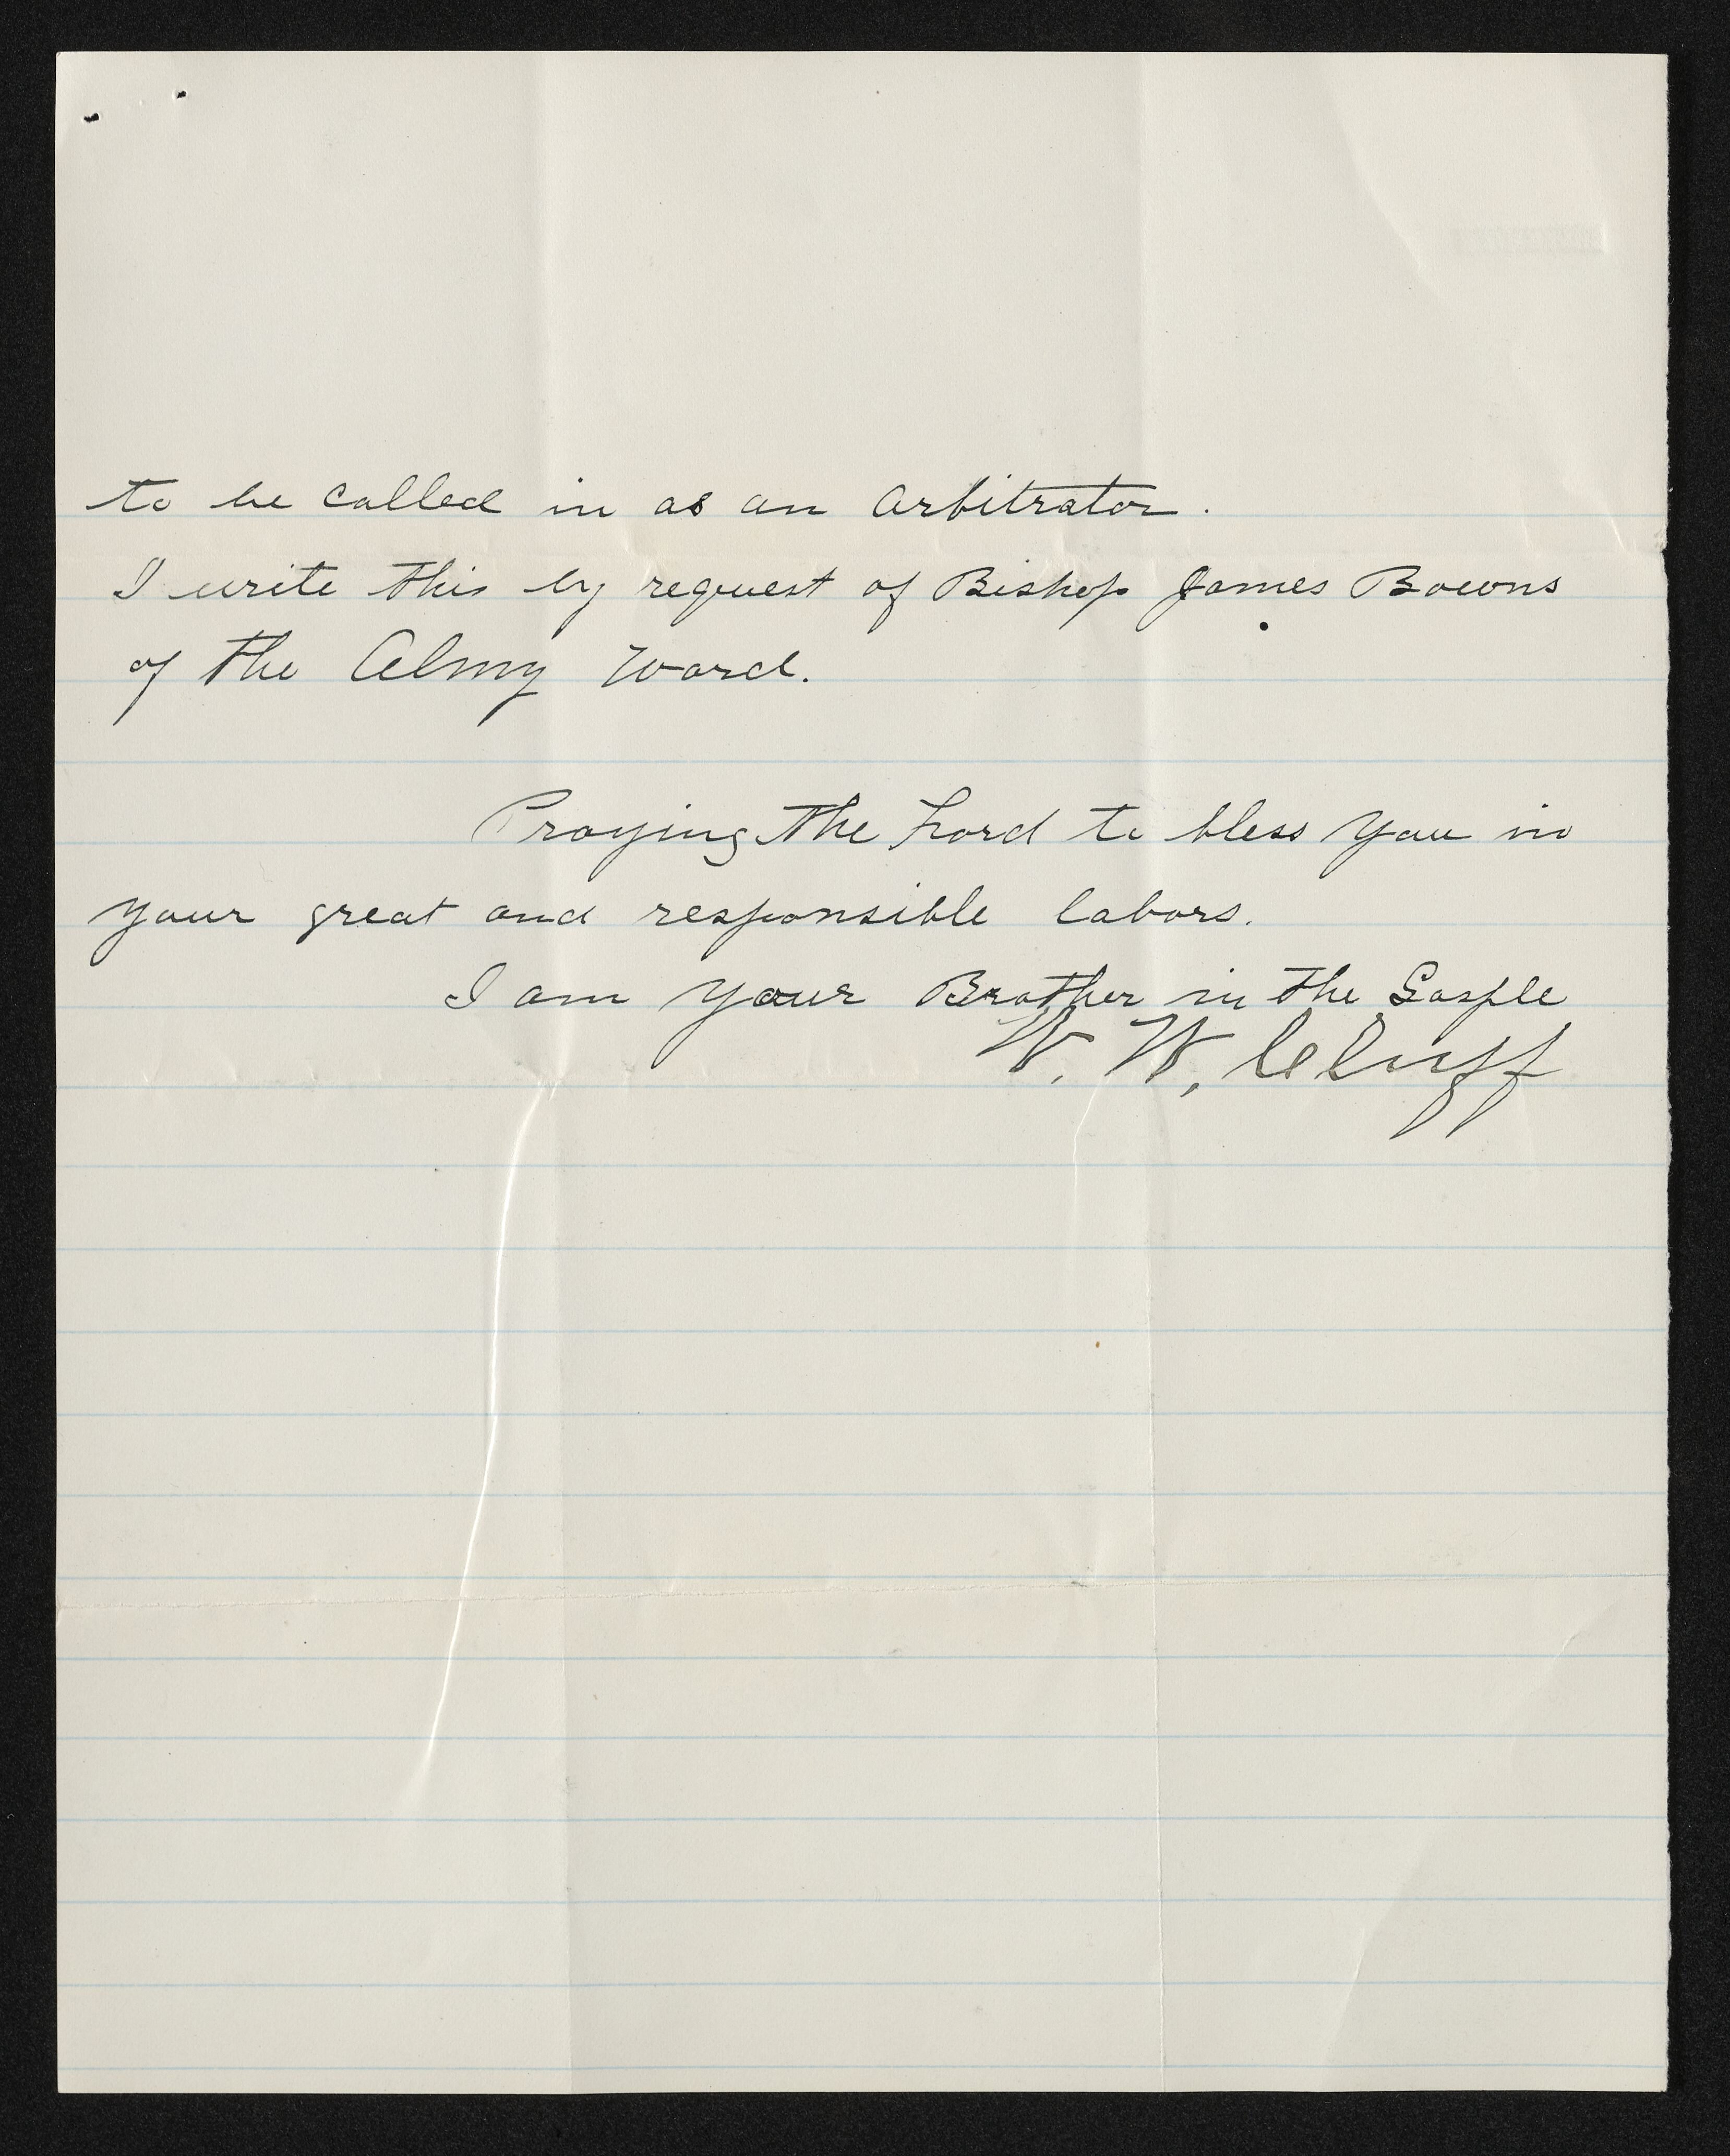 to be called in as an arbitrator.
I write this by request of Bishop James Bowns
of the Almy Ward.
Praying the Lord to bless you in
your great and responsible labors.
I am your Brother in the Gosple
W. W. Cluff